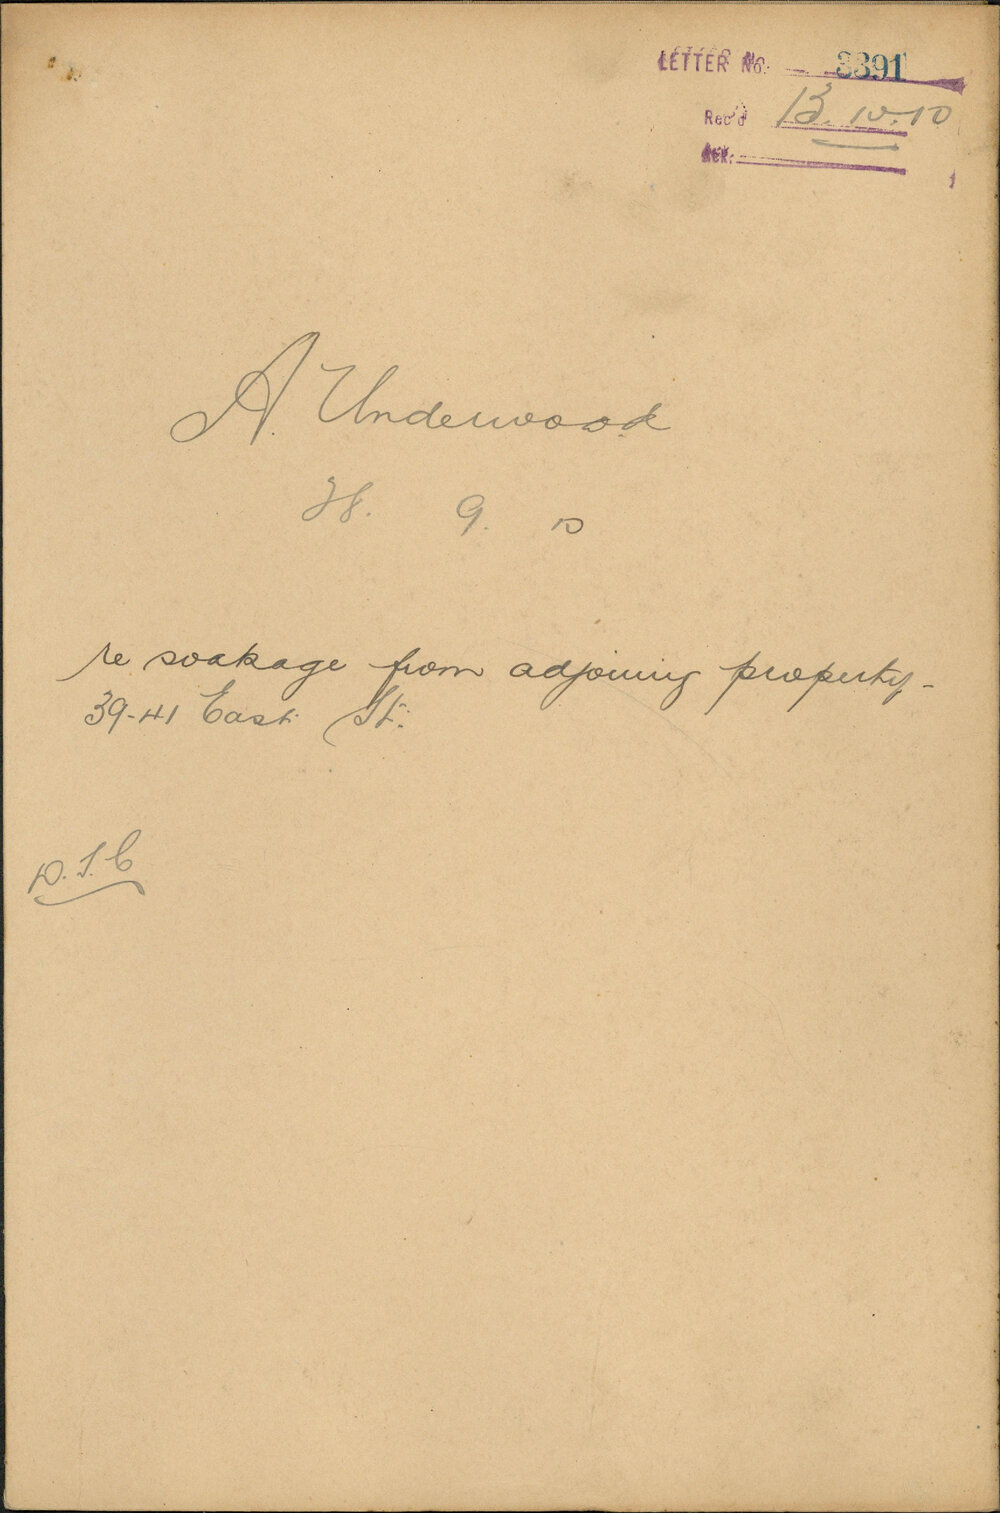 LETTER No. 3391
Rec'd 13.10.10
Ack.
A. Underwood
28. 9. 10
re soakage from adjoining property -
39-41 East St.
D.S.C